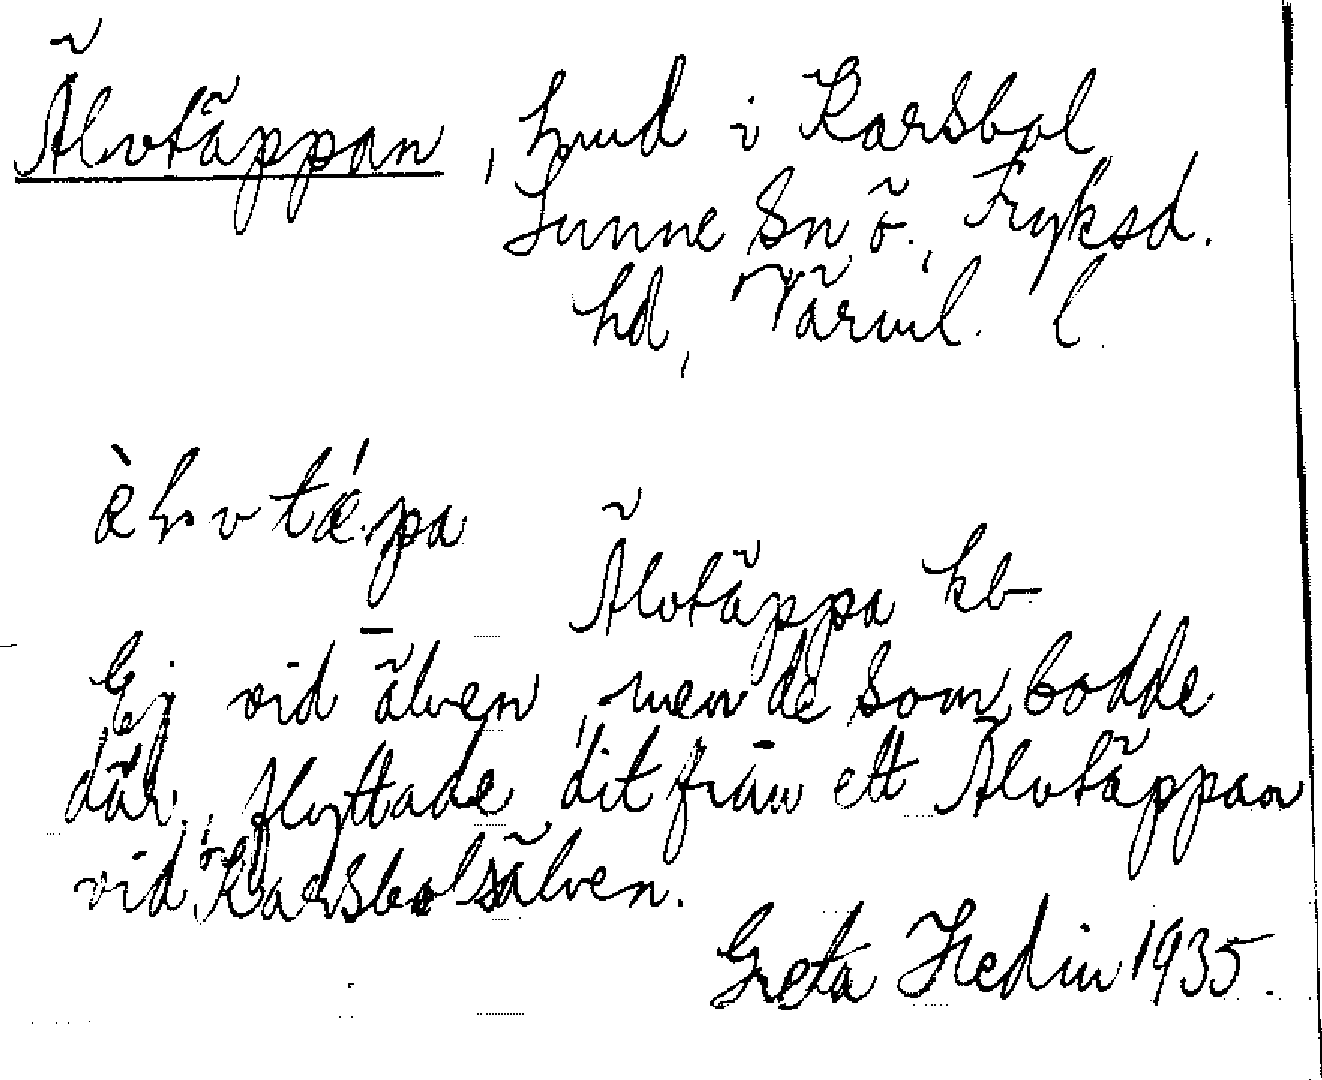 Älvtäppan, hmd i Karsbol
Sunne Sn ö., Fryksd.
hd, Värml. l.
Älvtäppa kb
Ej vid älven, men de som bodde
där, flyttade dit från ett Älvtäppan
vid Karsbolsälven.
Greta Hedin 1935.